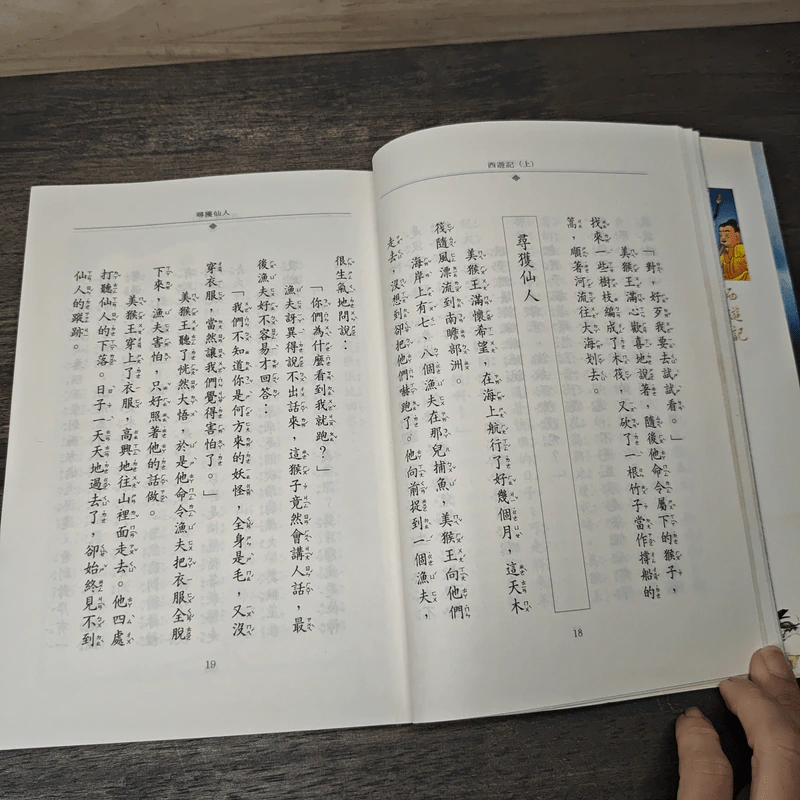 西遊記（上）
「對，好歹我要去試試看。」
美猴王滿心歡喜地說著，隨後他命令屬下的猴子，
找來一些樹枝編成了木筏，又砍了一根竹子當作撐船的
篙，順著河流往大海划去。
尋獲仙人
美猴王滿懷希望，在海上航行了好幾個月，這天木
筏隨風漂流到南瞻部洲。
海岸上有七、八個漁夫在那兒捕魚，美猴王向他們
走去，沒想到卻把他們嚇跑了。他向前捉到一個漁夫，
18
尋獲仙人
很生氣地問說：
「你們為什麼看到我就跑？」
漁夫訝異得說不出話來，這猴子竟然會講人話，最
後漁夫好不容易才回答：
「我們不知道你是何方來的妖怪，全身是毛，又沒
穿衣服，當然讓我們覺得害怕了。」
美猴王聽了恍然大悟，於是他命令漁夫把衣服全脫
下來，漁夫害怕，只好照著他的話做。
美猴王穿上了衣服，高興地往山裡面走去。他四處
打聽仙人的下落。日子一天天地過去了，卻始終見不到
仙人的蹤跡。
19
西遊記